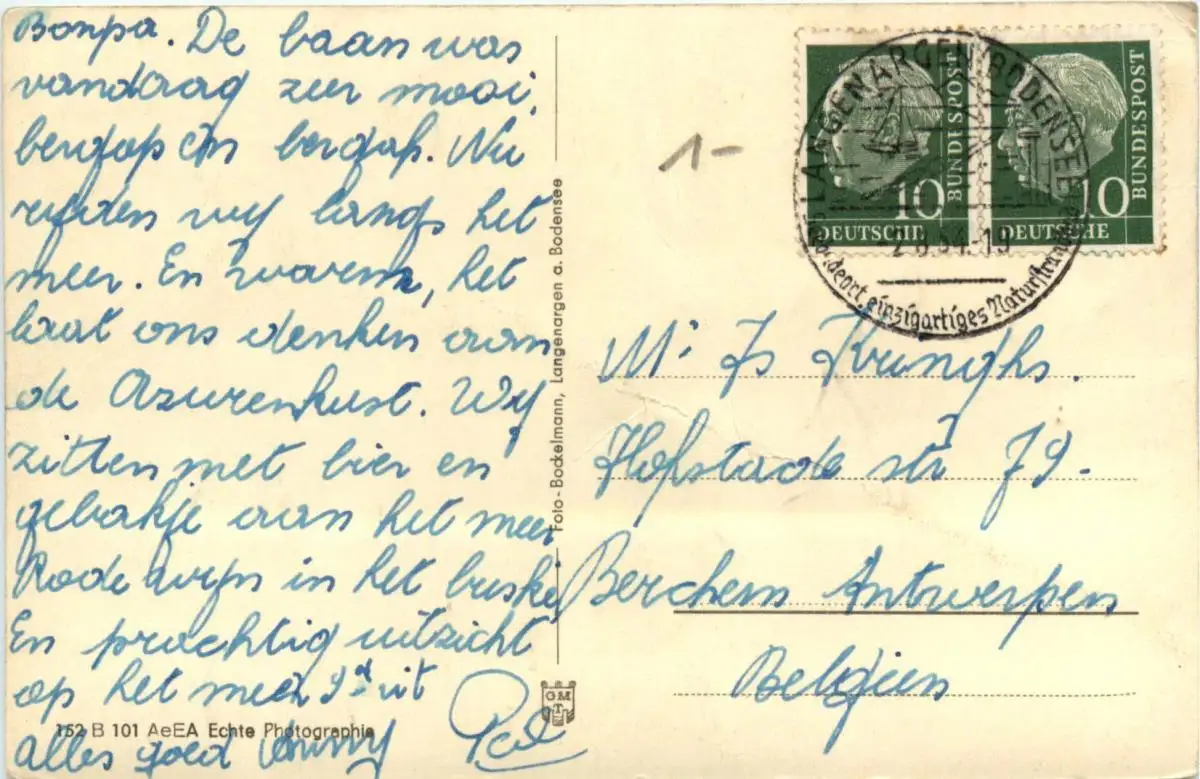 Bonpa. De baan was
vandaag zeer mooi,
bergop en bergaf. Nu
rijden wij langs het
meer. En warm, het
laat ons denken aan
de Azurenkust. Wij
zitten met bier en
gebakje aan het meer
Rode wijn in het buske
En prachtig uitzicht
op het meer
alles goed
152 B 101 AeEA Echte Photographie
Foto-Bockelmann, Langenargen a. Bodensee
GMT
1-
LANGENARGEN BODENSEE
einzigartiges Naturstrandbad
10 BUNDESPOST
DEUTSCHE
10 BUNDESPOST
DEUTSCHE
Mr Js Kringhs.
Hofstade str 79-
Berchem Antwerpen
Belgien